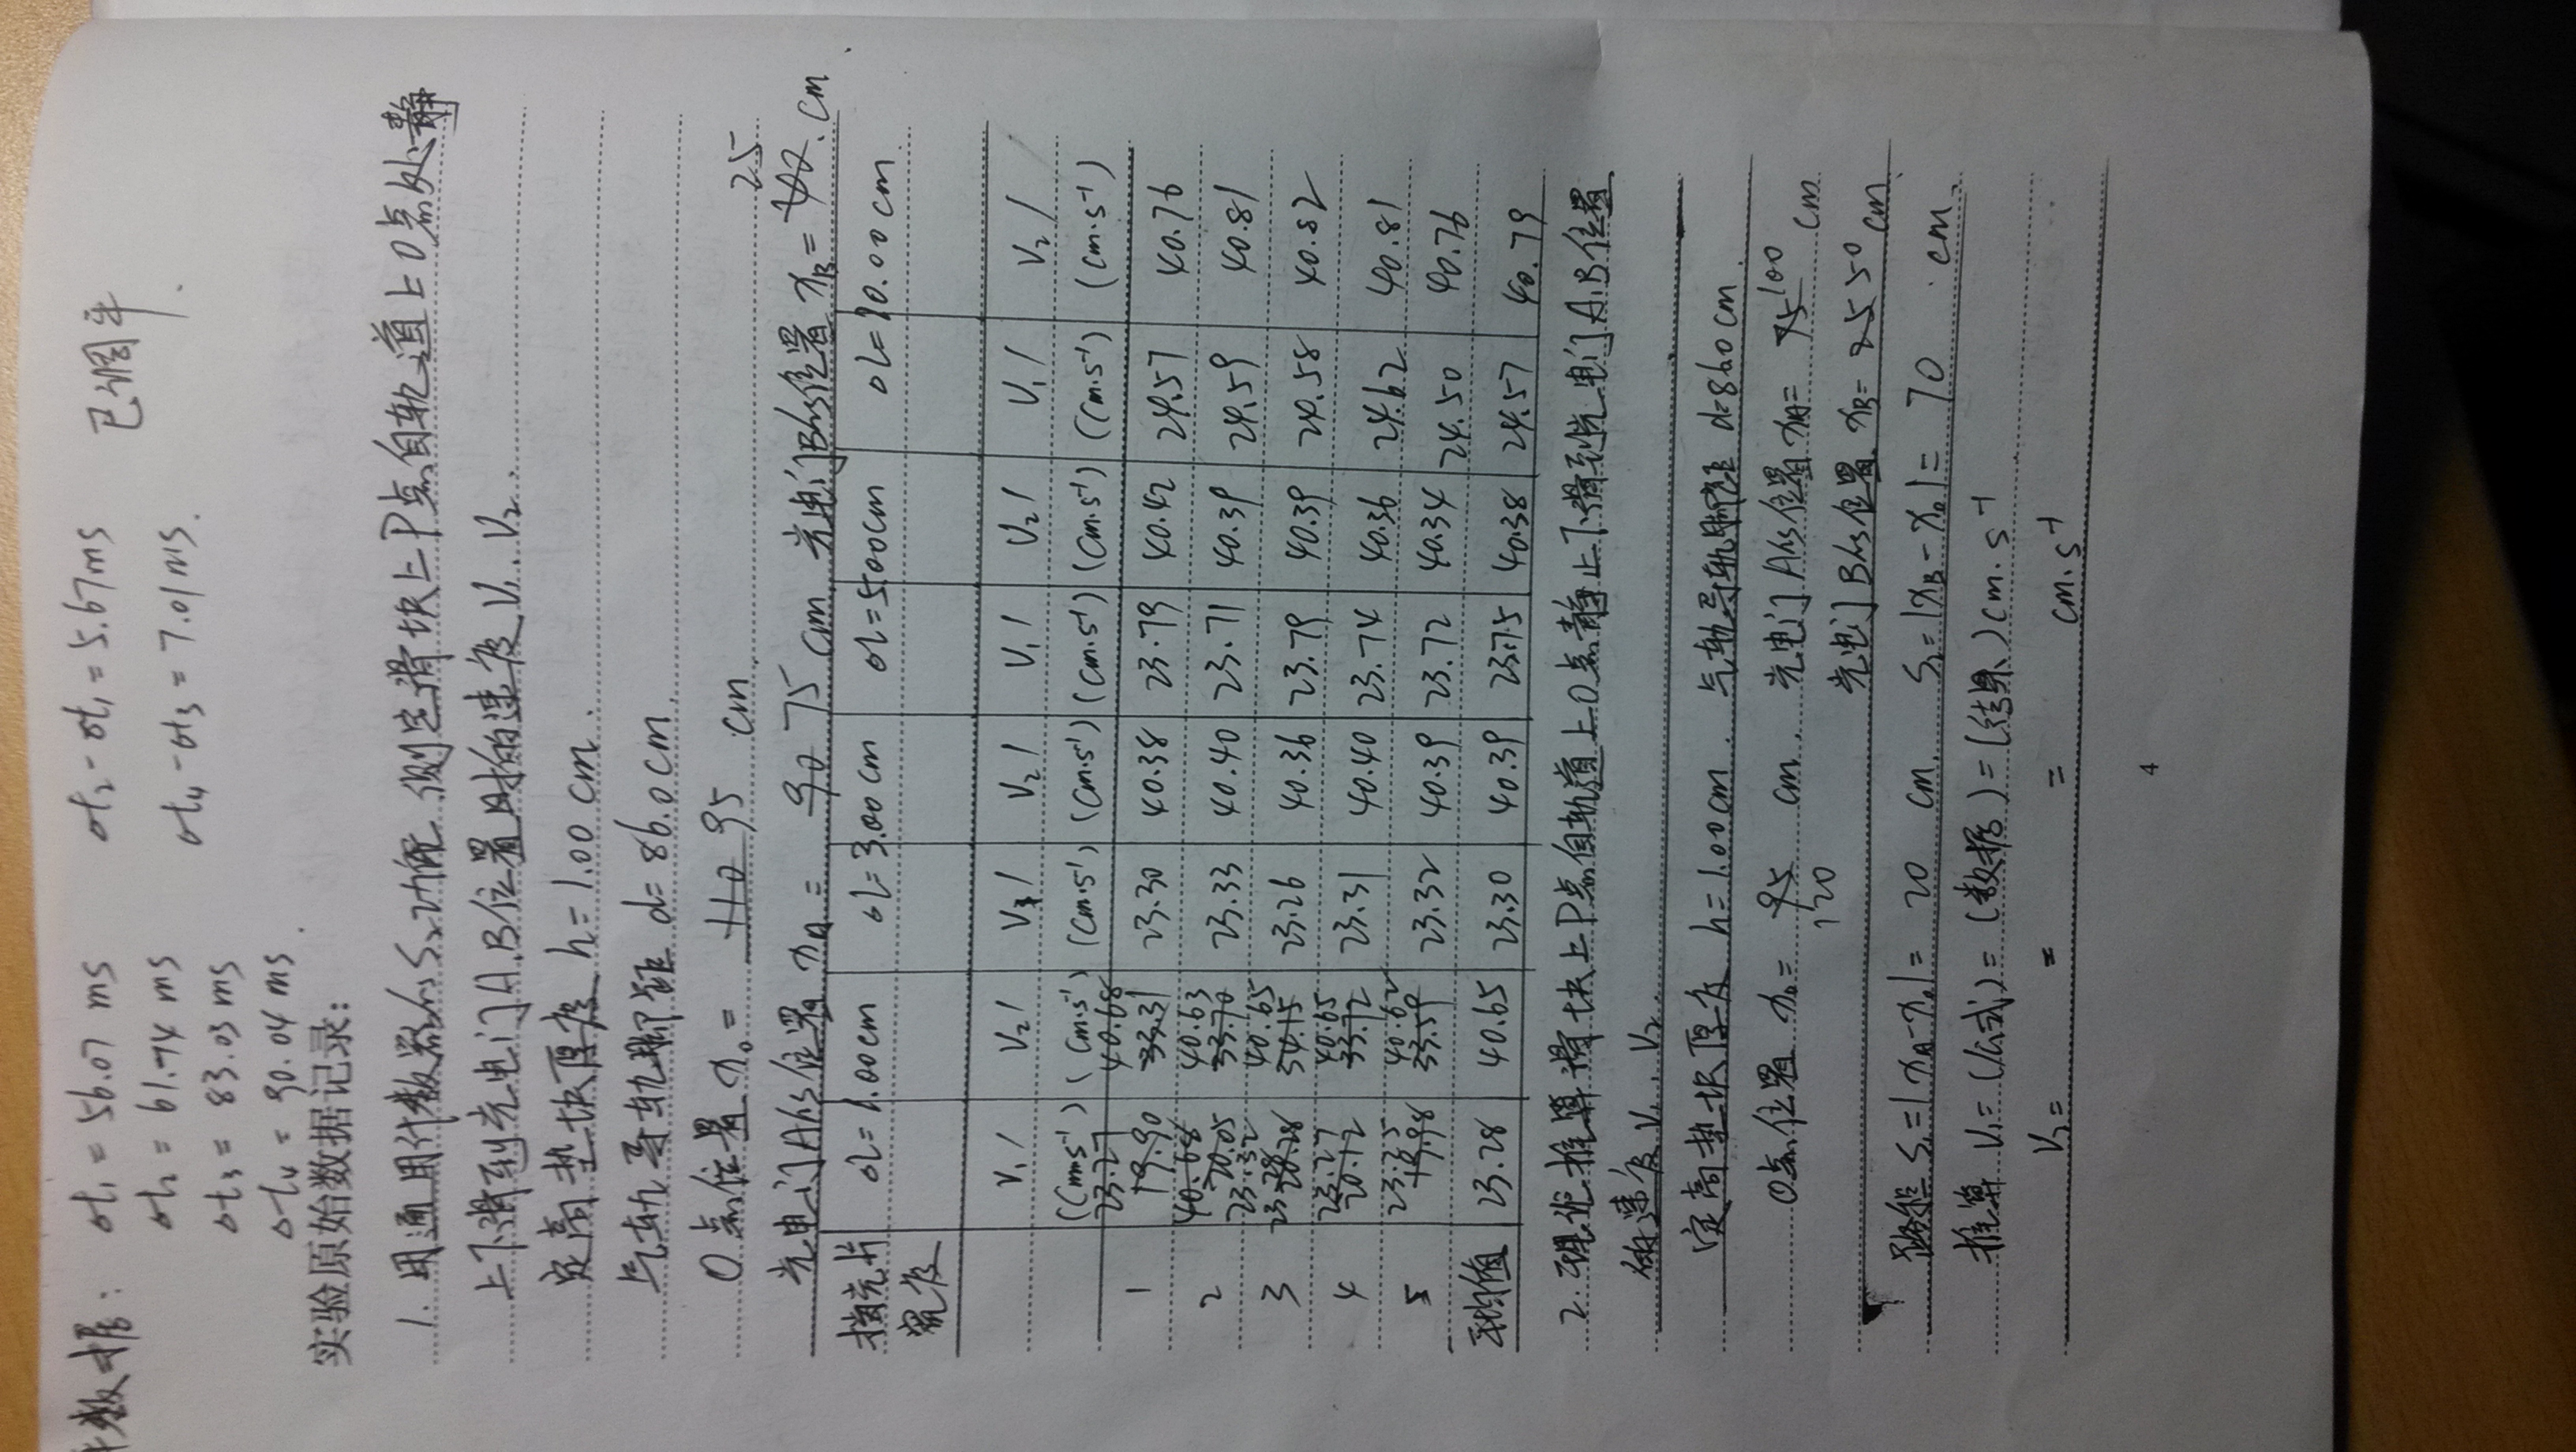 数据：
δt₁ = 56.07 ms δt₂-δt₁ = 5.67ms 已调平
δt₂ = 61.74 ms δt₄-δt₃ = 7.01ms.
δt₃ = 83.03 ms
δt₄ = 90.04 ms.
实验原始数据记录：
1. 用通用计数器的S₂功能，测定滑块上P点自轨道上O点处静
上下滑到光电门A.B位置时的速度V₁.V₂.
定高垫块厚度 h=1.00 cm.
气轨导轨脚距 d=86.0cm.
O点位置 x₀= 110 95 cm.
光电门A的位置 xA= 90 75 cm 光电门B的位置 xB= 40 25 cm
挡光片宽度 δL=1.00cm δL=3.00cm δL=5.00cm δL=10.00cm
V₁/ V₂/ V₁/ V₂/ V₁/ V₂/ V₁/ V₂/
(cm·s⁻¹) (cm·s⁻¹) (cm·s⁻¹) (cm·s⁻¹) (cm·s⁻¹) (cm·s⁻¹) (cm·s⁻¹) (cm·s⁻¹)
1 23.27 19.90 40.68 33.31 23.30 40.38 23.79 40.42 24.57 40.76
2 40.64 20.05 23.32 40.63 33.70 23.33 40.40 23.71 40.39 24.59 40.81
3 23.28 20.28 40.65 34.15 23.26 40.36 23.79 40.39 24.58 40.82
4 23.27 20.12 40.65 33.72 23.31 40.40 23.74 40.36 24.62 40.81
5 23.25 19.98 40.62 33.59 23.32 40.39 23.72 40.34 24.50 40.76
平均值 23.28 40.65 23.30 40.39 23.75 40.38 24.57 40.79
2. 理论推算滑块上P点自轨道上O点静止下滑到光电门A.B位置
的速度V₁.V₂.
定高垫块厚度 h=1.00cm. 气轨导轨脚距 d=86.0cm
O点位置 x₀= 95 120 cm. 光电门A的位置xA= 75 100 cm
光电门B的位置 xB= 25 50 cm
路程 S₁=|xA-x₀|= 20 cm. S₂=|xB-x₀|= 70 cm.
推算 V₁=(公式)=(数据)=(结果)cm.s⁻¹
V₂= = = cm.s⁻¹
4